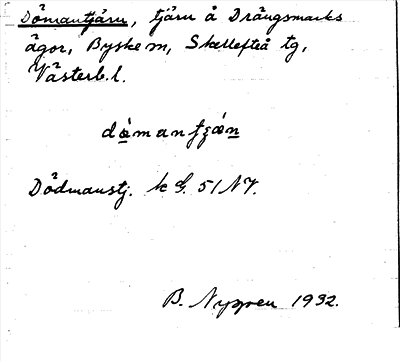 Dömantjärn, tjärn å Drängsmarks
ägor, Byske sn, Skellefteå tg,
Västerb.l.
Dödmanstj. k G. 51 NV.
B. Nygren 1932.